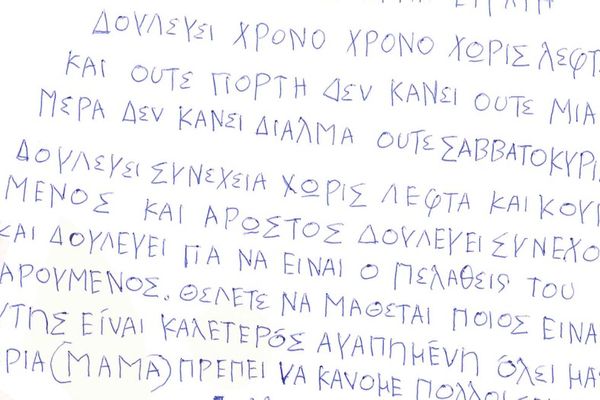 ΔΟΥΛΕΥΕΙ ΧΡΟΝΟ ΧΡΟΝΟ ΧΩΡΙΣ ΛΕΦΤ
ΚΑΙ ΟΥΤΕ ΓΙΟΡΤΗ ΔΕΝ ΚΑΝΕΙ ΟΥΤΕ ΜΙΑ
ΜΕΡΑ ΔΕΝ ΚΑΝΕΙ ΔΙΑΛΜΑ ΟΥΤΕ ΣΑΒΒΑΤΟΚΥΡΙ
ΔΟΥΛΕΥΕΙ ΣΥΝΕΧΕΙΑ ΧΩΡΙΣ ΛΕΦΤΑ ΚΑΙ ΚΟΥΡ
ΜΕΝΟΣ ΚΑΙ ΑΡΩΣΤΟΣ ΔΟΥΛΕΥΕΙ ΣΥΝΕΧΟ
ΚΑΙ ΔΟΥΛΕΥΕΙ ΓΙΑ ΝΑ ΕΙΝΑΙ Ο ΠΕΛΑΘΕΙς ΤΟΥ
ΑΡΟΥΜΕΝΟΣ. ΘΕΛΕΤΕ ΝΑ ΜΑΘΕΤΑΙ ΠΟΙΟΣ ΕΙΝΑ
ΥΤΗΣ ΕΊΝΑΙ ΚΑΛΕΤΕΡΌΣ ΑΓΑΠΗΜΈΝΗ ΌΛΕΙ ΜΑ
ΡΙΑ (ΜΑΜΑ) ΠΡΕΠΕΙ ΝΑ ΚΑΝΟΜΕ ΠΟΛΛΟΙ